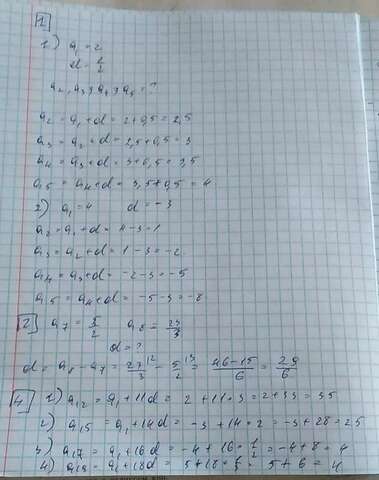 1
1) a₁ = 2
d = 1/2
a₂, a₃, a₄, a₅ = ?
a₂ = a₁ + d = 2 + 0,5 = 2,5
a₃ = a₂ + d = 2,5 + 0,5 = 3
a₄ = a₃ + d = 3 + 0,5 = 3,5
a₅ = a₄ + d = 3,5 + 0,5 = 4
2) a₁ = 4 d = -3
a₂ = a₁ + d = 4 - 3 = 1
a₃ = a₂ + d = 1 - 3 = -2
a₄ = a₃ + d = -2 - 3 = -5
a₅ = a₄ + d = -5 - 3 = -8
2 a₇ = 5/2 a₈ = 23/3
d = ?
d = a₈ - a₇ = 23/3 - 5/2 = 46-15/6 = 29/6
4 1) a₁₂ = a₁ + 11d = 2 + 11·3 = 2 + 33 = 35
2) a₁₅ = a₁ + 14d = -3 + 14·2 = -3 + 28 = 25
3) a₁₇ = a₁ + 16d = -4 + 16·1/2 = -4 + 8 = 4
4) a₁₉ = a₁ + 18d = 5 + 18·1/3 = 5 + 6 =